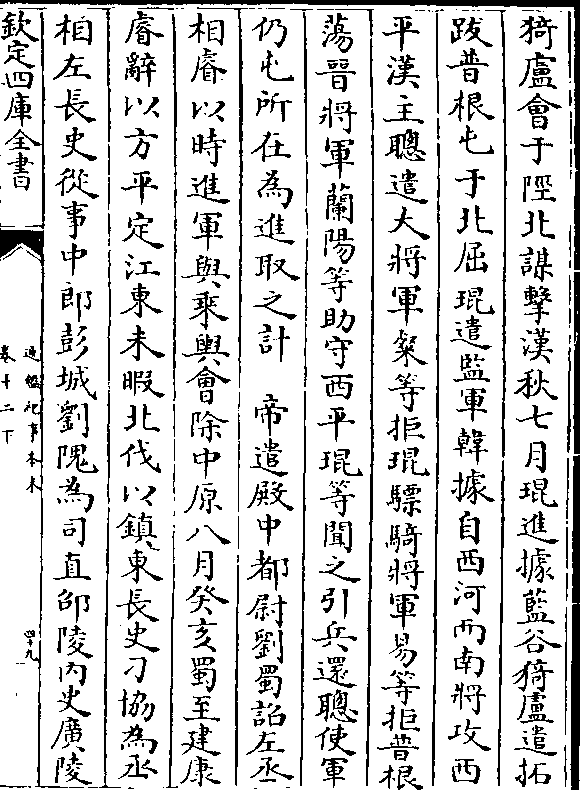 猗盧會于陘北謀擊漢秋七月琨進據藍谷猗盧遣拓
跋普根屯于北屈琨遣監軍韓據自西河而南將攻西
平漢主聰遣大將軍粲等拒琨驃騎將軍易等拒普根
蕩晉將軍蘭陽等助守西平琨等聞之引兵還聰使軍
仍屯所在為進取之計　帝遣殿中都尉劉蜀詔左丞
相睿以時進軍與乘輿會除中原八月癸亥蜀至建康
睿辭以方平定江東未暇北伐以鎮東長史刁協為丞
相左長史從事中郎彭城劉隗為司直邵陵內史廣陵
欽定四庫全書
通鑑紀事本末
卷十二下
四十九